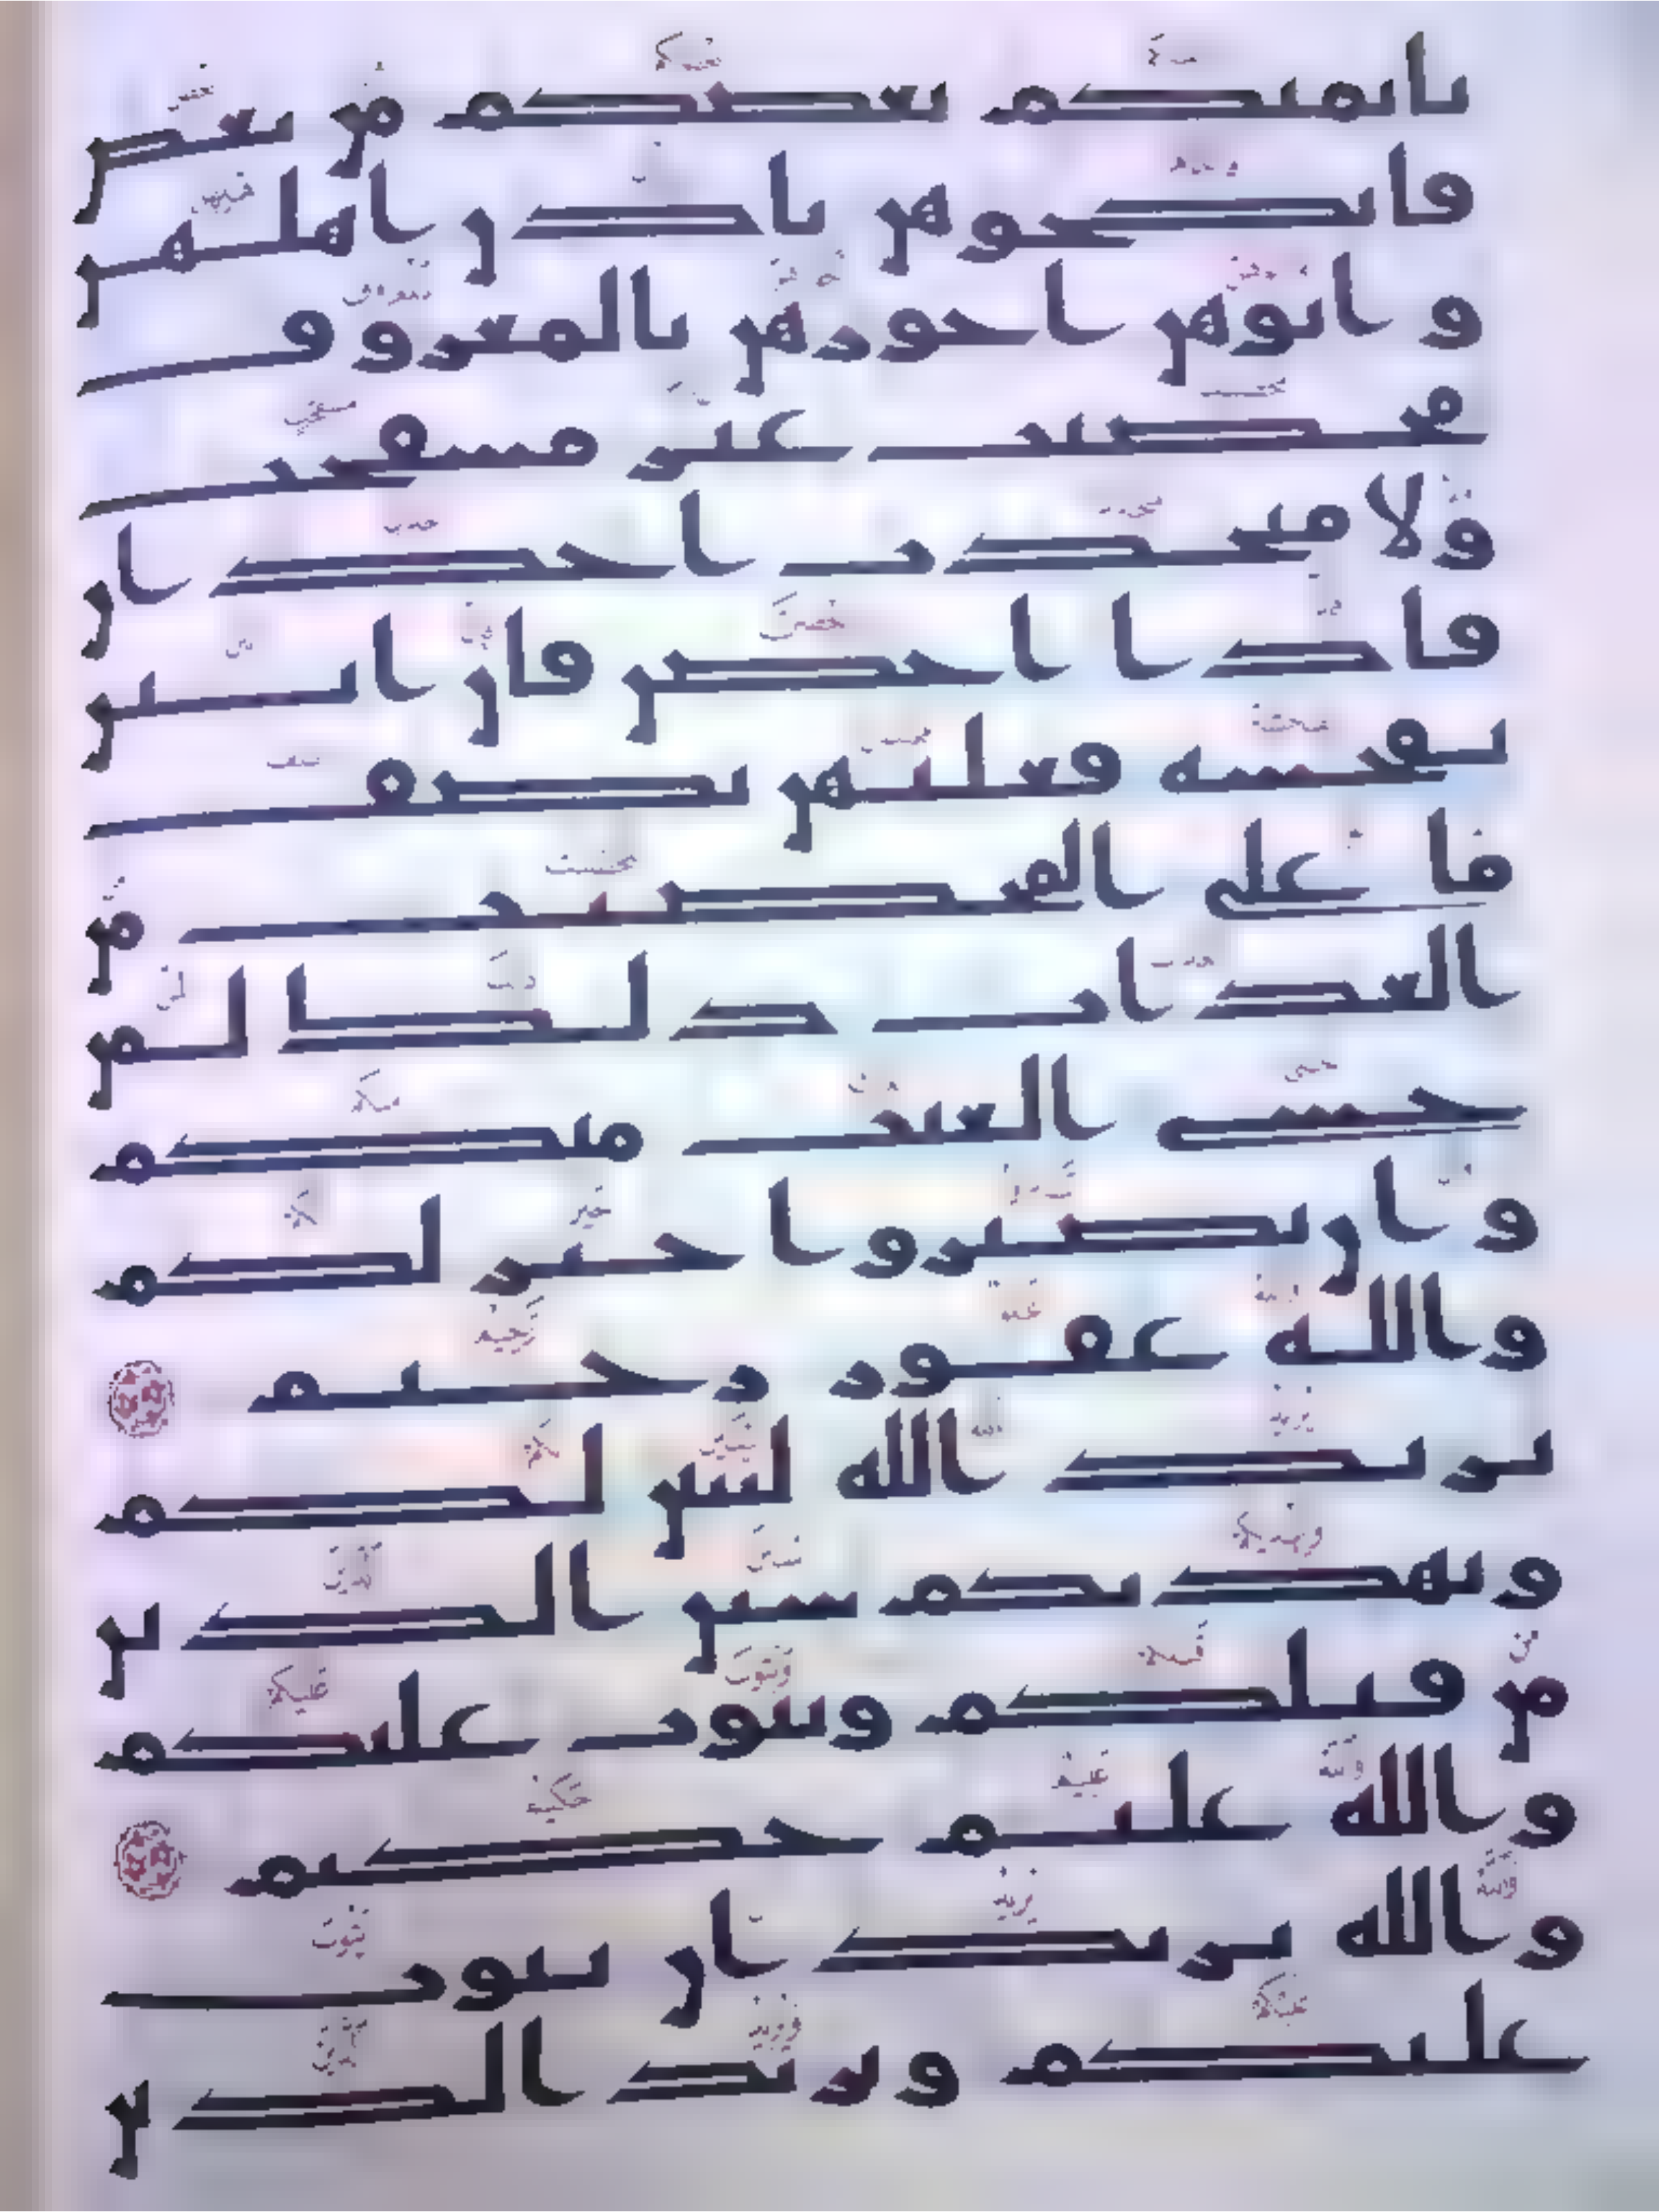 بايمنكم بعضكم من بعض
فانكحوهن باذن اهلهن
و اتوهن اجورهن بالمعروف
محصنت غير مسفحت
ولا متخذت اخدان
فاذا احصن فان اتين
بفحشة فعليهن نصف
ما على المحصنت من
العذاب ذلك لمن
خشي العنت منكم
و ان تصبروا خير لكم
والله غفور رحيم
يريد الله ليبين لكم
ويهديكم سنن الذين
من قبلكم ويتوب عليكم
والله عليم حكيم
والله يريد ان يتوب
عليكم ويريد الذين